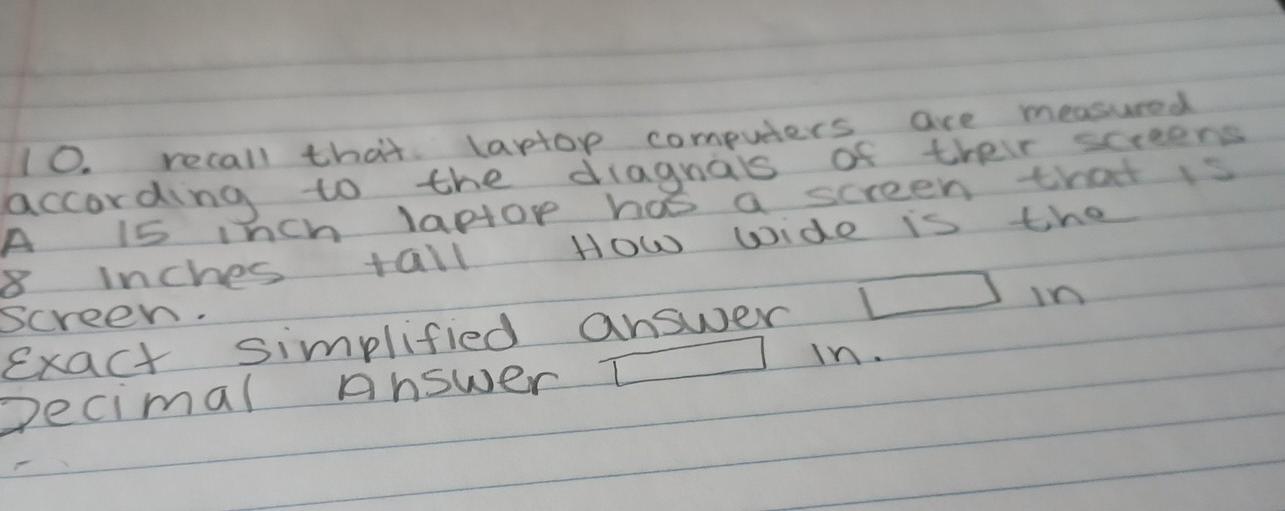 10. recall that laptop computers are measured
according to the diagnals of their screens
A 15 inch laptop has a screen that is
8 inches tall How wide is the
screen.
Exact simplified answer in
Decimal Answer in.